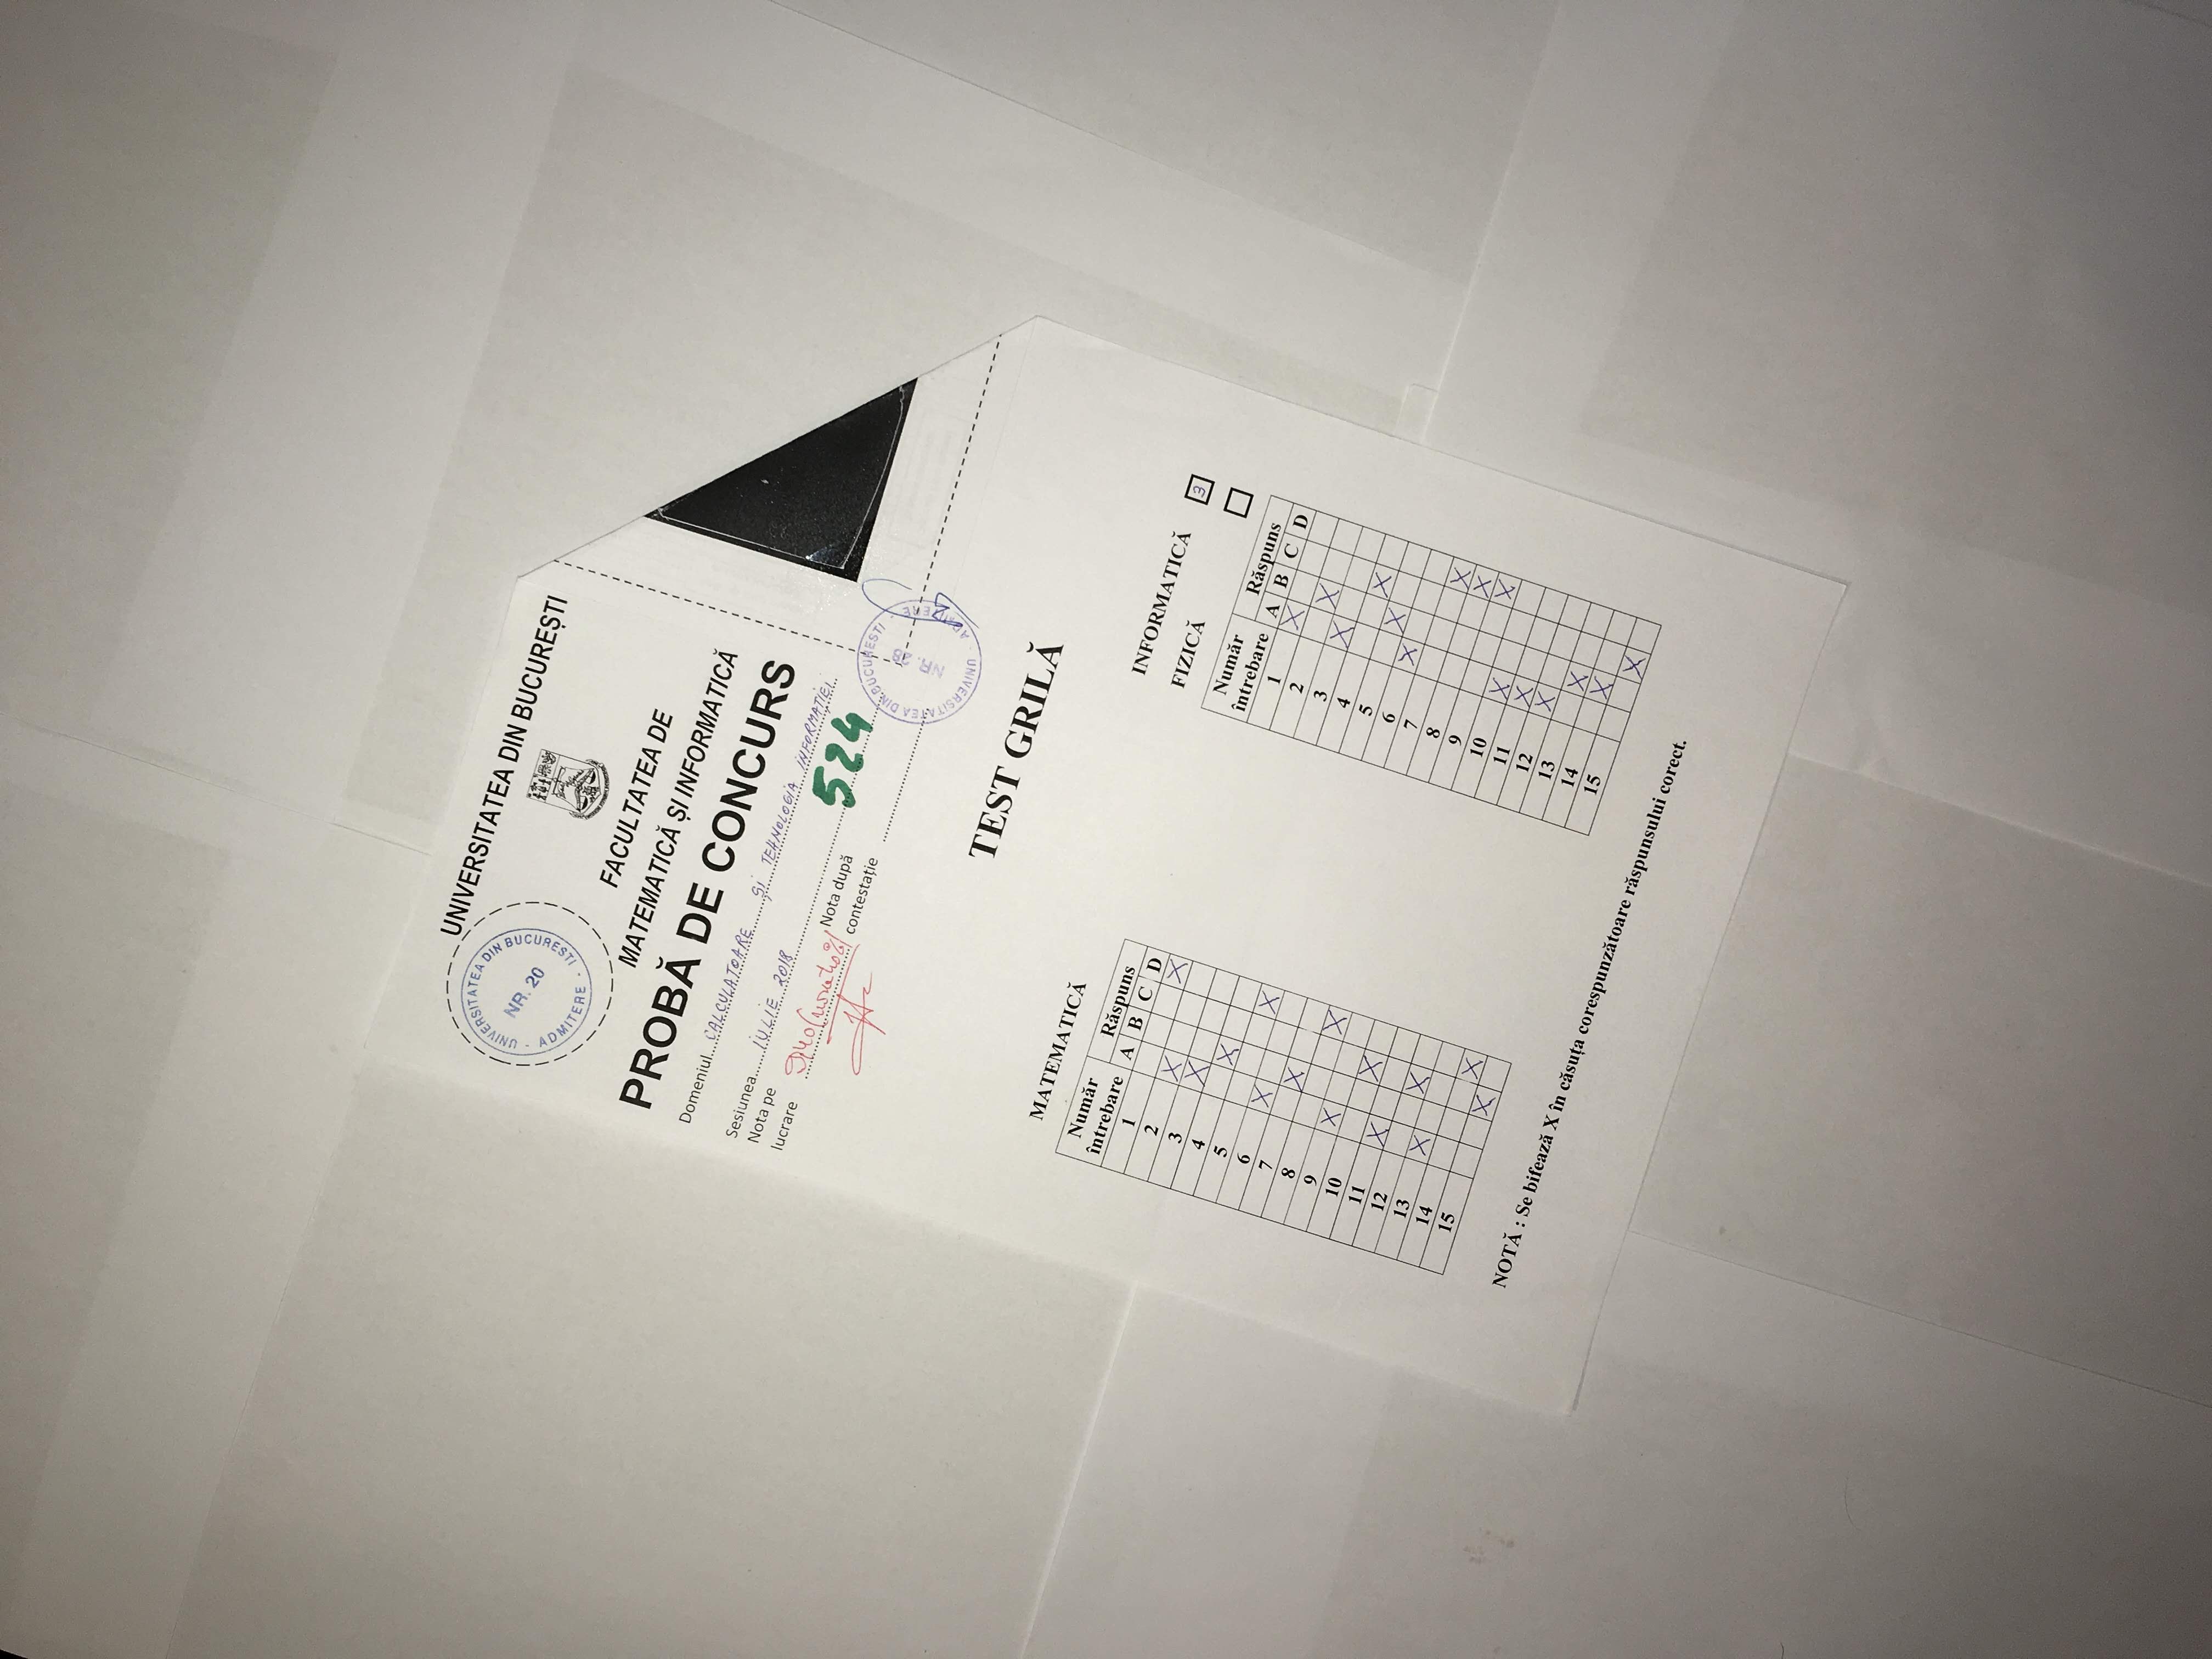 UNIVERSITATEA DIN BUCUREȘTI
UNIVERSITATEA DIN BUCUREȘTI · ADMITERE ·
NR. 20
FACULTATEA DE
MATEMATICĂ ȘI INFORMATICĂ
PROBĂ DE CONCURS
Domeniul CALCULATOARE ȘI TEHNOLOGIA INFORMAȚIEI
Sesiunea IULIE 2018
Nota pe
lucrare 9,40
Nota după
contestație
524
UNIVERSITATEA DIN BUCUREȘTI · ADMITERE ·
NR. 28
TEST GRILĂ
MATEMATICĂ
Număr
întrebare
Răspuns
A B C D
1 X
2 X
3 X
4 X
5 X
6 X
7 X
8 X
9 X
10 X
11 X
12 X
13 X
14 X
15 X
INFORMATICĂ 3
FIZICĂ
Număr
întrebare
Răspuns
A B C D
1 X
2 X
3 X
4 X
5 X
6 X
7 X
8 X
9 X
10 X
11 X
12 X
13 X
14 X
15 X
NOTĂ : Se bifează X în căsuța corespunzătoare răspunsului corect.